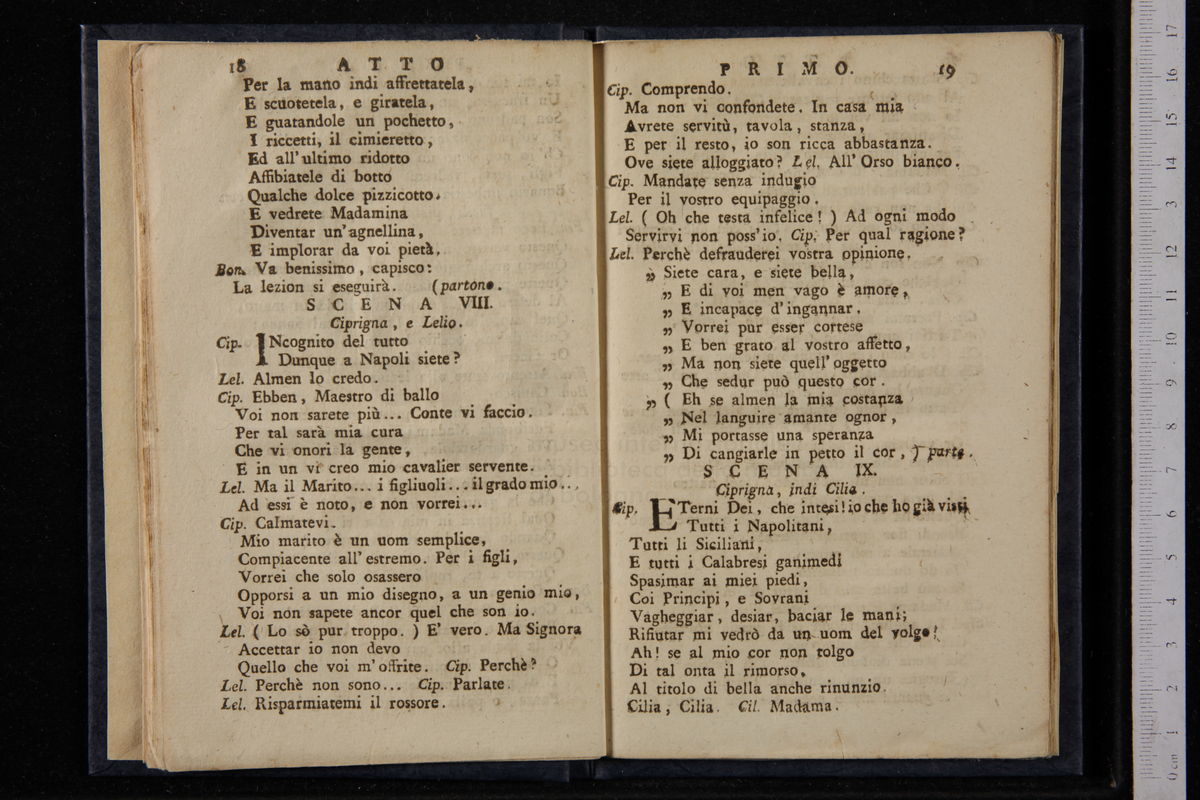 18 ATTO
Per la mano indi affrettatela,
E scuotetela, e giratela,
E guatandole un pochetto,
I riccetti, il cimieretto,
Ed all'ultimo ridotto
Affibiatele di botto
Qualche dolce pizzicotto.
E vedrete Madamina
Diventar un'agnellina,
E implorar da voi pietà.
Bon. Va benissimo, capisco:
La lezion si eseguirà. (partono.
SCENA VIII.
Ciprigna, e Lelio.
Cip. INcognito del tutto
Dunque a Napoli siete?
Lel. Almen lo credo.
Cip. Ebben, Maestro di ballo
Voi non sarete più... Conte vi faccio.
Per tal sarà mia cura
Che vi onori la gente,
E in un vi creo mio cavalier servente.
Lel. Ma il Marito... i figliuoli... il grado mio...
Ad essi è noto, e non vorrei...
Cip. Calmatevi.
Mio marito è un uom semplice,
Compiacente all'estremo. Per i figli,
Vorrei che solo osassero
Opporsi a un mio disegno, a un genio mio,
Voi non sapete ancor quel che son io.
Lel. ( Lo sò pur troppo. ) E' vero. Ma Signora
Accettar io non devo
Quello che voi m'offrite. Cip. Perchè?
Lel. Perchè non sono... Cip. Parlate.
Lel. Risparmiatemi il rossore.
PRIMO. 19
Cip. Comprendo.
Ma non vi confondete. In casa mia
Avrete servitù, tavola, stanza,
E per il resto, io son ricca abbastanza.
Ove siete alloggiato? Lel. All'Orso bianco.
Cip. Mandate senza indugio
Per il vostro equipaggio.
Lel. ( Oh che testa infelice! ) Ad ogni modo
Servirvi non poss'io. Cip. Per qual ragione?
Lel. Perchè defrauderei vostra opinione.
„ Siete cara, e siete bella,
„ E di voi men vago è amore,
„ E incapace d'ingannar.
„ Vorrei pur esser cortese
„ E ben grato al vostro affetto,
„ Ma non siete quell'oggetto
„ Che sedur può questo cor.
„ ( Eh se almen la mia costanza
„ Nel languire amante ognor,
„ Mi portasse una speranza
„ Di cangiarle in petto il cor, ) parte.
SCENA IX.
Ciprigna, indi Cilia.
Cip. ETerni Dei, che intesi! io che ho già visti
Tutti i Napolitani,
Tutti li Siciliani,
E tutti i Calabresi ganimedi
Spasimar ai miei piedi,
Coi Principi, e Sovrani
Vagheggiar, desiar, baciar le mani;
Rifiutar mi vedrò da un uom del volgo!
Ah! se al mio cor non tolgo
Di tal onta il rimorso,
Al titolo di bella anche rinunzio.
Cilia, Cilia. Cil. Madama.
0 cm 1 2 3 4 5 6 7 8 9 10 11 12 13 14 15 16 17